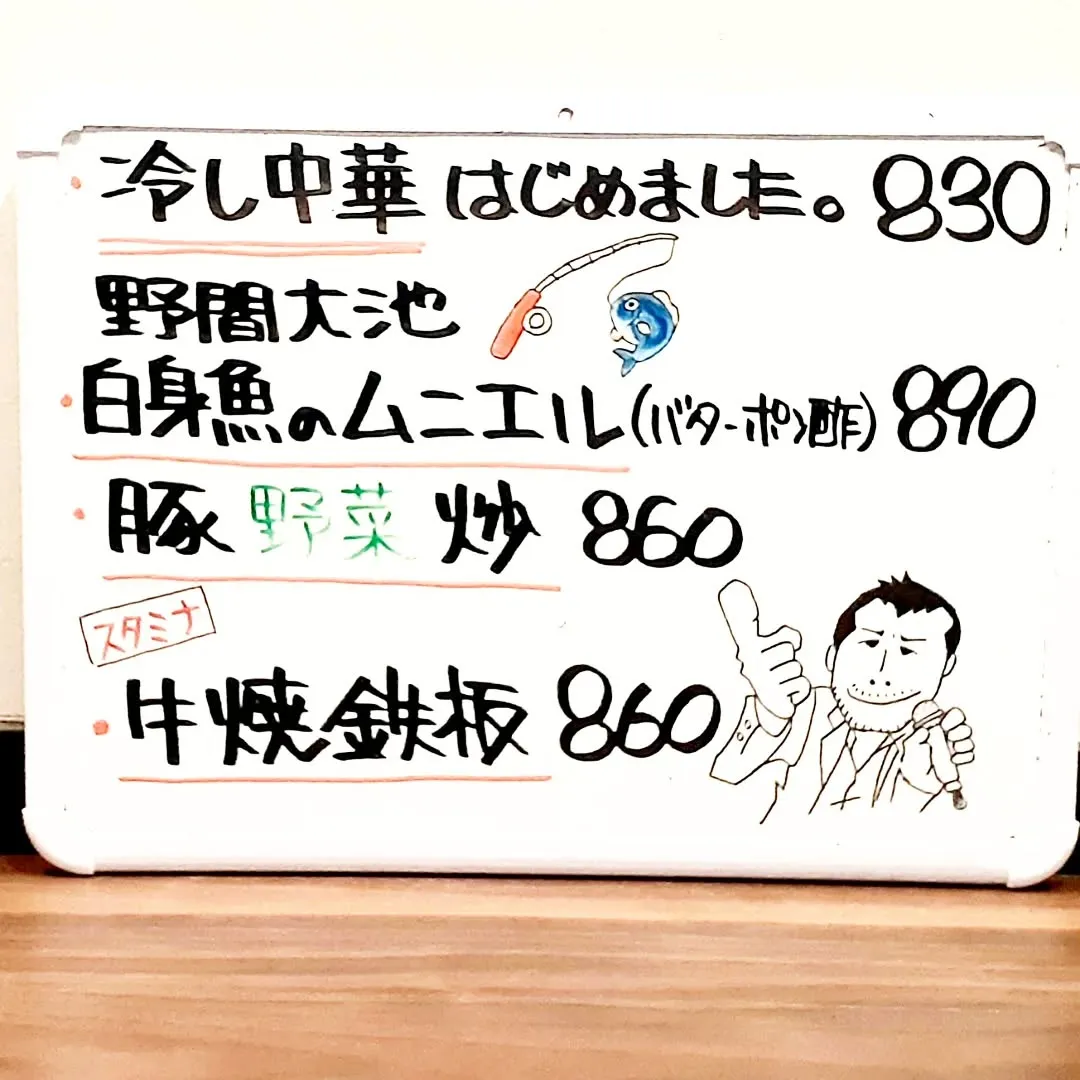 ・冷し中華はじめました。830
野間大池
・白身魚のムニエル(バターポン酢)890
・豚野菜炒 860
スタミナ
・牛焼鉄板 860